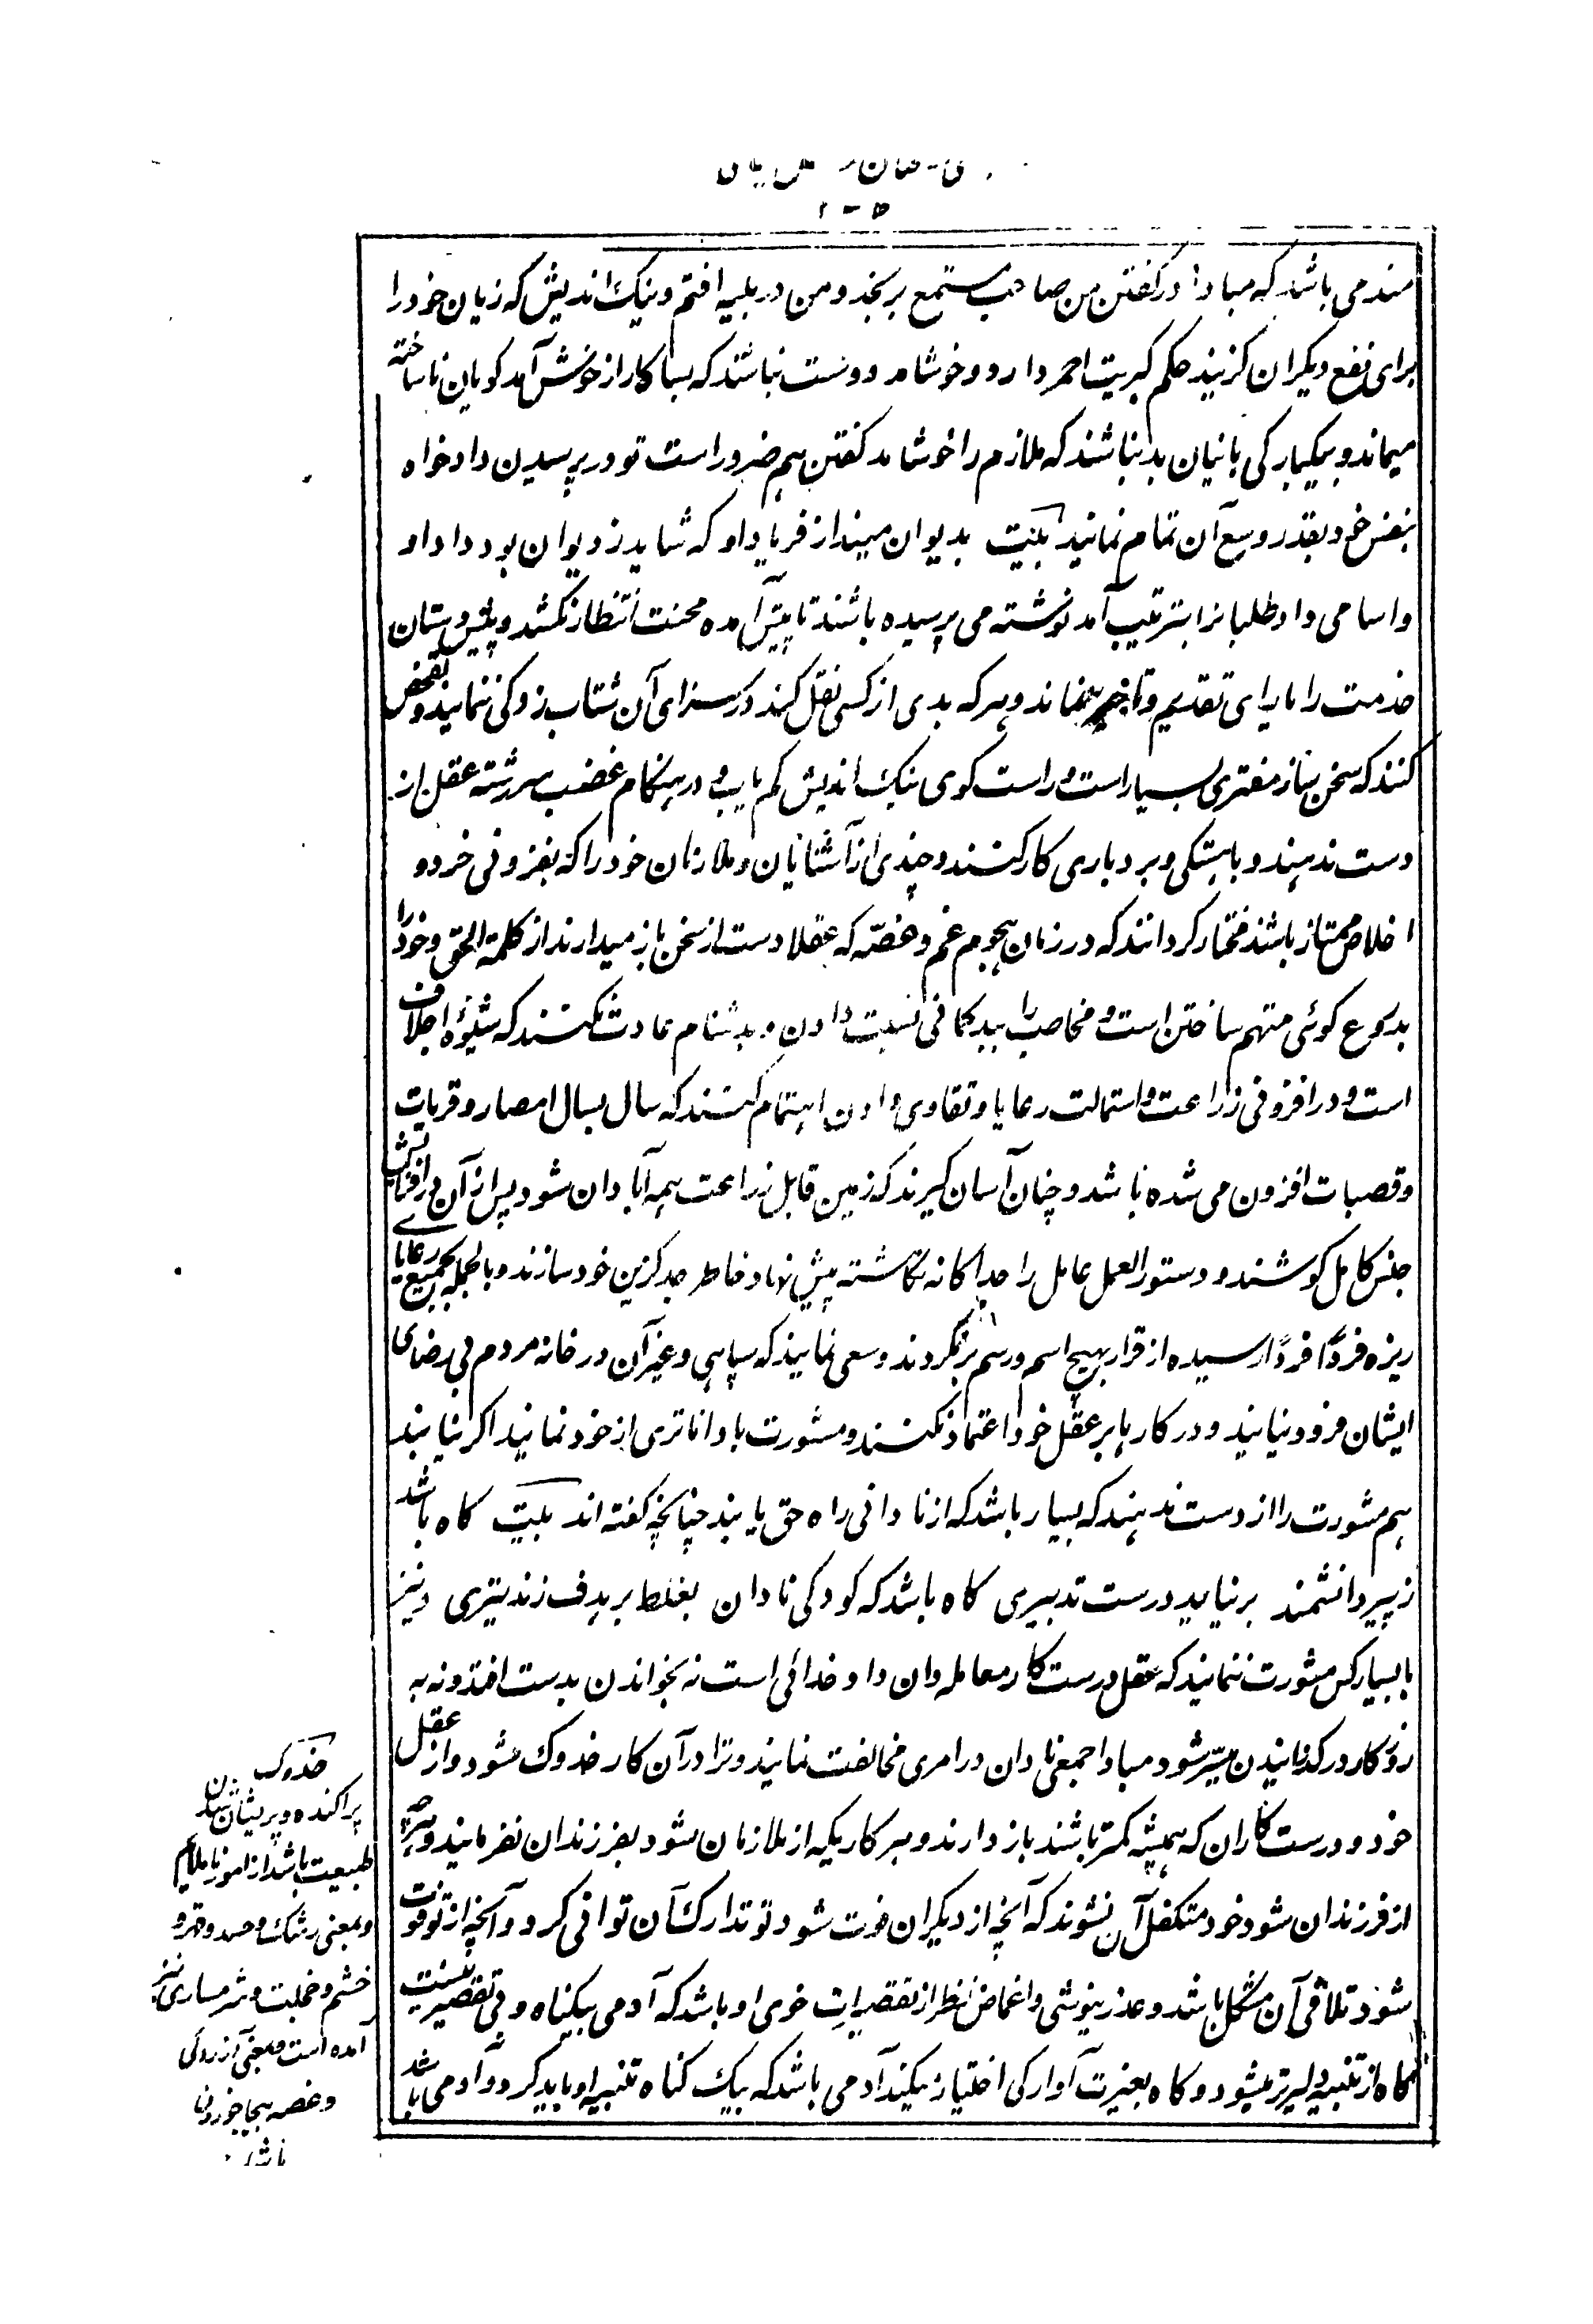 مند می باشد که مبادا در گفتن من صاحب مستمع برنجد و من در بلیه افتم و نیک اندیش که زیان خود را
برای نفع دیکران کزیند حکم کبریت احمر دارد و خوشامد دوست نباشند که بسا کار از خوش آمد کویان ناساخته
میماند و بیکبارکی بانیان بد نباشند که ملازم را خوشامد کفتن هم ضرور است تو در پرسیدن دادخواه
بنفس خود بقدر وسع آن تمام نمانید بیت بدیوان مینداز فریاد او که شاید ز دیوان بود داد او
و اسامی دادطلبانرا بترتیب آمد نوشته می پرسیده باشند تا پیش آمده محنت انتظار نکشد و پیش دستان
خدمت را یارای تقدیم و تاخیر نماند و هر که بدی از کسی نقل کند در سزای آن شتاب زدکی ننمایند و تفحص
کنند که سخن ساز مفتری بسیار است و راست کوی نیک اندیش کم یاب و در هنکام غضب سررشته عقل از
دست ندهند و باهستکی و بردباری کار کنند و چندی از آشنایان و ملازمان خود را که بفزونی خرد و
اخلاص ممتاز باشند مختار کردانند که در زمان هجوم غم و غصّه که عقلا دست از سخن باز میدارند از کلمة الحق و خود را
بدروع کوئی متهم ساختن است و مخاصب را ببدکمانی نسبت دادن و بدشنام عادت نکنند که شیوه اجلاف
است و در افزونی زراعت و استمالت رعایا و تقاوی دادن اهتمام کنند که سال بسال امصار و قریات
و قصبات افزون می شده باشد و چنان آسان کیرند که زمین قابل زراعت همه آبادان شود پس از آن در افزایش
جنس کامل کوشند و دستور العمل عامل را جداکانه نکاشته پیش نهاد خاطر جدکزین خود سازند و بالجمله بجمیع رعایای
ریزه فردًا فردًا رسیده از قرار بهیچ اسم و رسم برنکردند و سعی نمایند که سپاهی و غیر آن در خانه مردم بی رضای
ایشان فرود نیایند و در کارها بر عقل خود اعتماد نکنند و مشورت با داناتری از خود نمایند اکر نیابند
هم مشورت را از دست ندهند که بسیار باشد که از نادانی راه حق یابند چنانچه کفته اند بیت کاه باشد
ز پیر دانشمند برنیاید درست تدبیری کاه باشد که کودکی نادان بغلط بر هدف زند تیری و نیز
با بسیار کس مشورت ننمایند که عقل درست کار معامله دان داد خدائی است نه بخواندن بدست افتد و نه به
روزکار در کذرانیدن میّسر شود مبادا جمعی نادان در امری مخالفت نمایند و ترا در آن کار خدوک شود و از عقل
خود و درست کاران که همیشه کمتر باشند باز دارند و هر کاریکه از ملازمان شود بفرزندان نفرمایند و هرچه
از فرزندان شود خود متکفل آن نشوند که آنچه از دیکران فوت شود تو تدارک آن توانی کرد و آنچه از تو فوت
شود تلافی آن مشکل باشد و عذر نیوشی و اغماض نظر از تقصیرات خوی او باشد که آدمی بیکناه و بی تقصیر نیست
کاه از تنبیه دلیرتر میشود و کاه بغیرت آوارکی اختیار میکند آدمی باشد که بیک کناه تنبیه او باید کرد و آدمی باشد
خدوک
پراکنده و پریشان شدن
طبیعت باشد از امور ناملایم
و بمعنی رشک و حسد و قهر و
خشم و خجلت و شرمساری نیز
آمده است و بمعنی آزردکی
و غصه بیجا خوردن
باشد